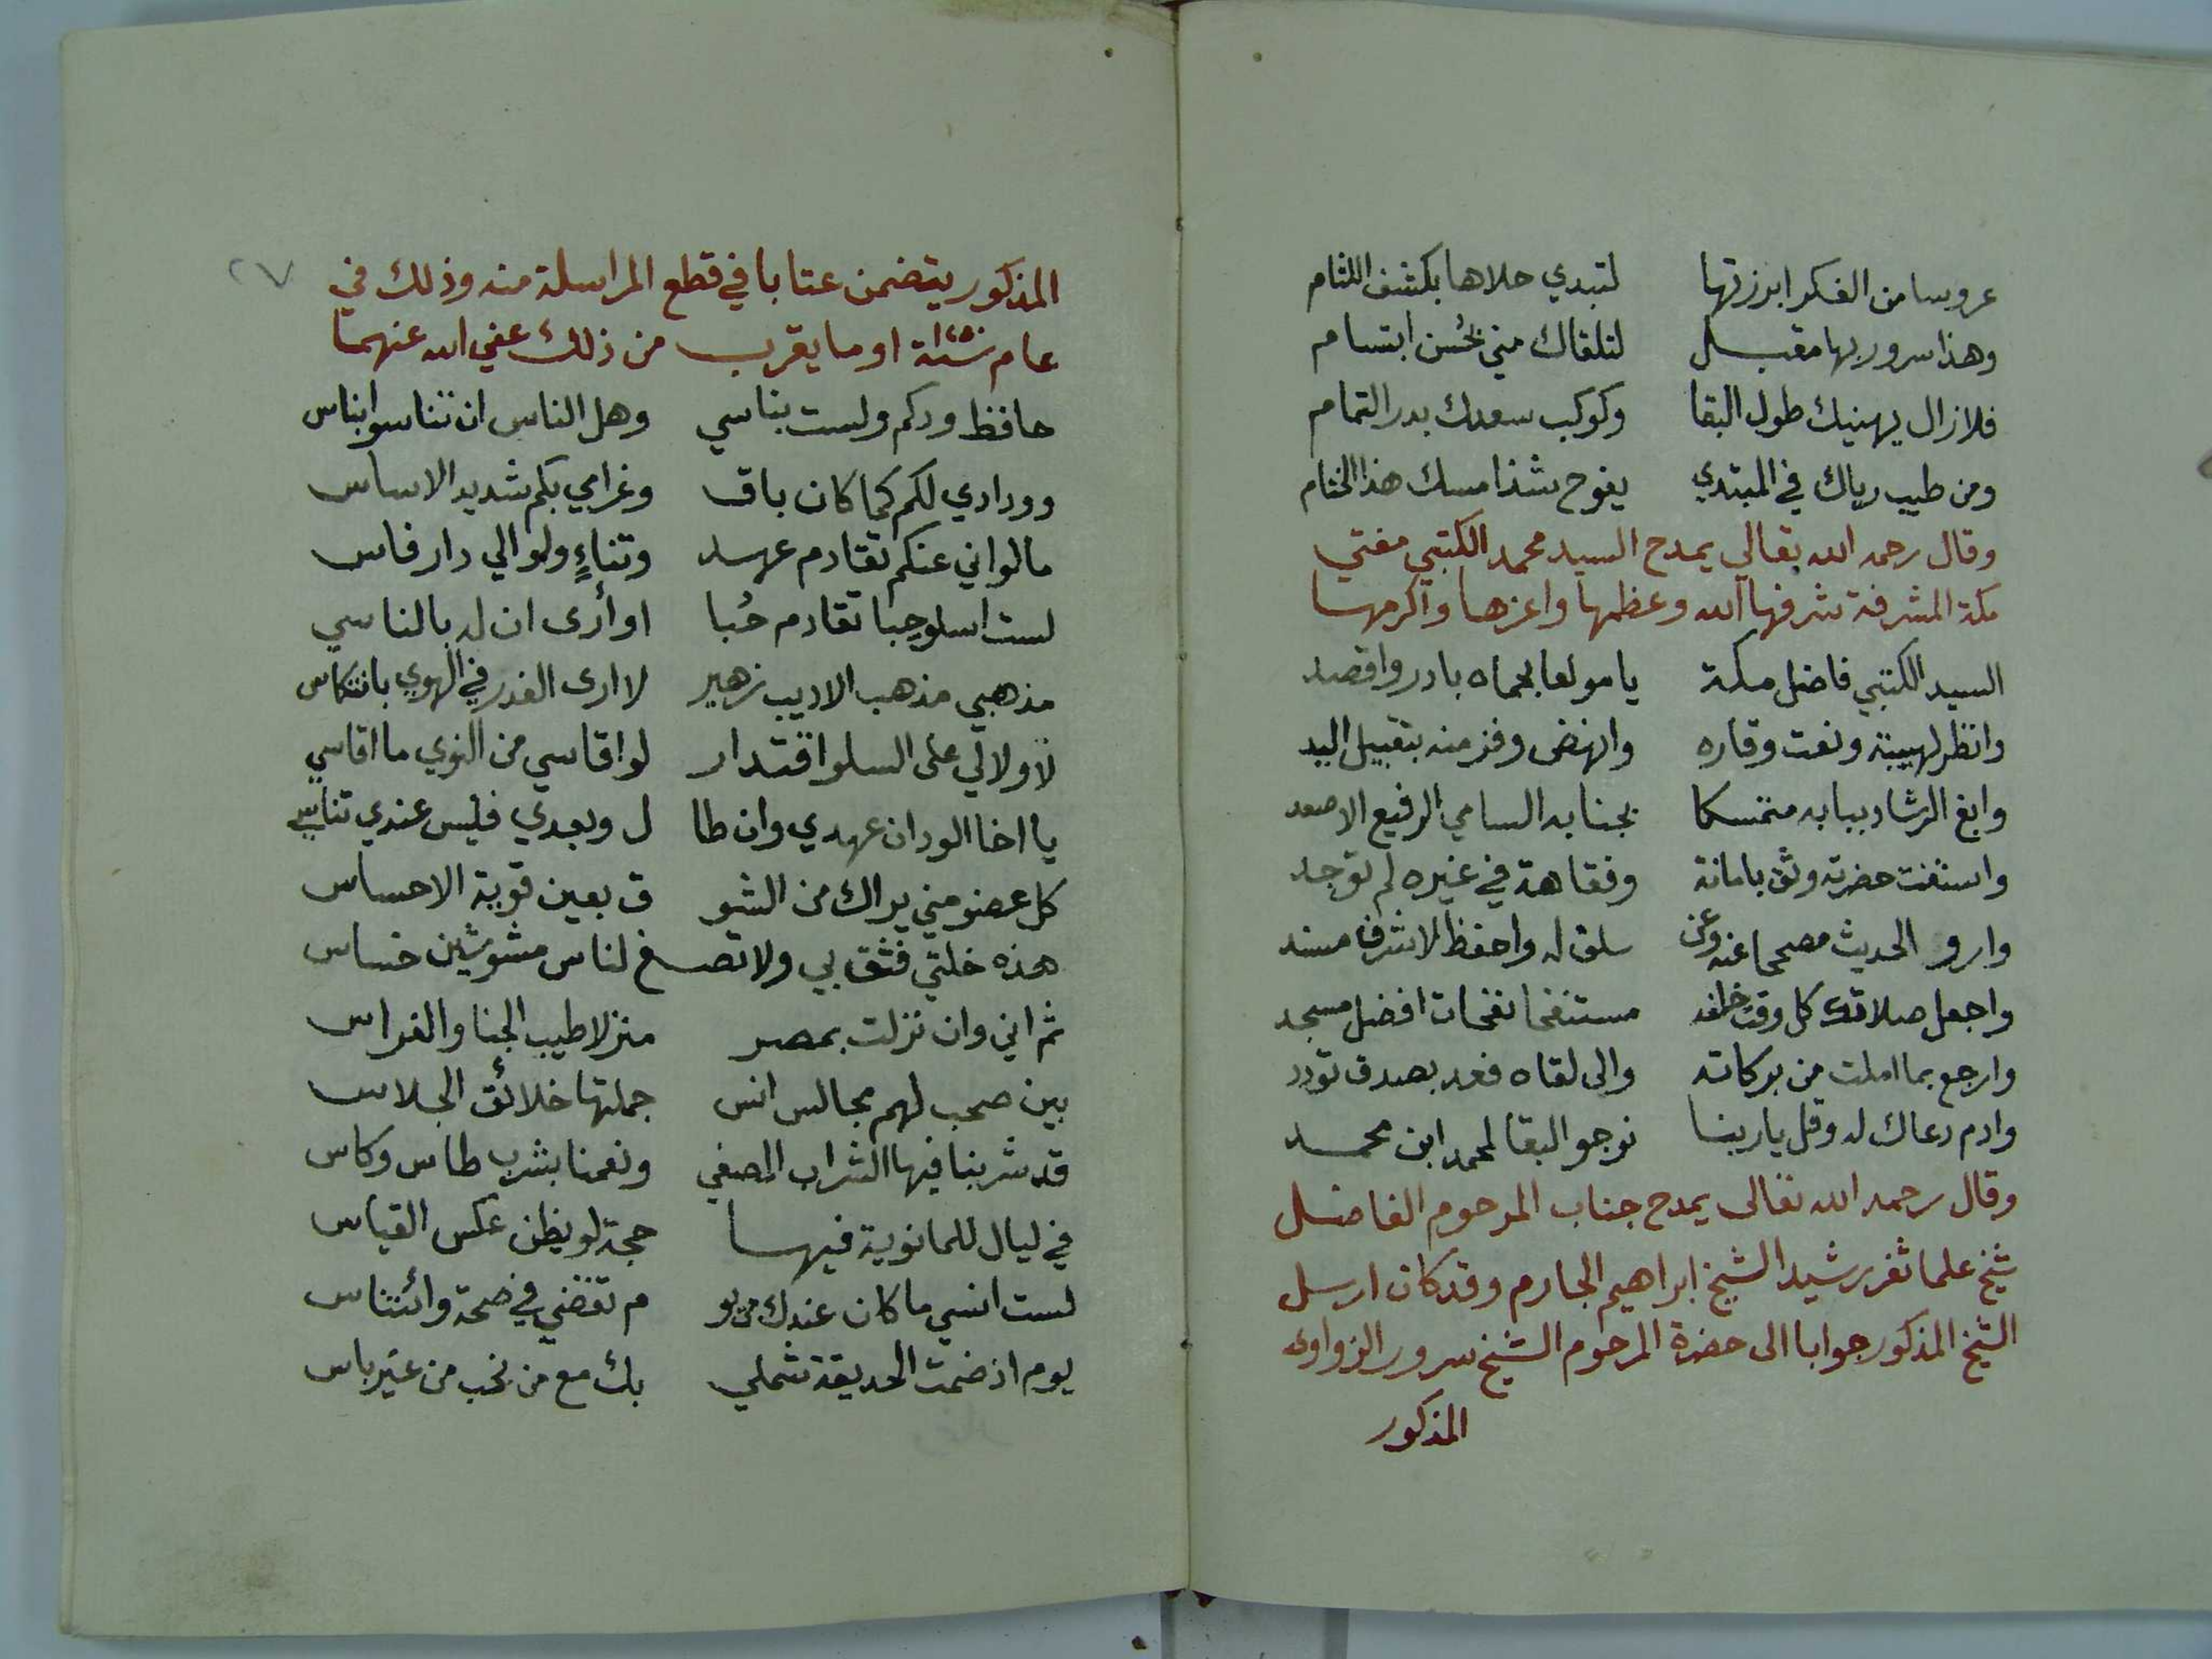 عروسا من الفكر ابرزتها لتبدي حلاها بكشف اللثام
وهذا سرور بها مقبل لتلقاك مني بحُسن ابتسام
فلا زال يهنيك طول البقا وكوكب سعدك بدر التمام
ومن طيب رياك في المبتدي يفوح شذا مسك هذا الختام
وقال رحمه الله تعالي يمدح السيد محمد الكتبي مفتي
مكة المشرفة شرفها الله وعظمها واعزها واكرمها
السيد الكتبي فاضل مكة يا مولعا بحماه بادر واقصد
وانظر لهيبته ونعت وقاره وانهض وفز منه بتقبيل اليد
وابغ الرشاد ببابه متمسكا بجنابه السامي الرفيع الاصعد
واستفت حضرته وثق بامانة وفقاهة في غيره لم توجد
وارو الحديث مصححا عنه وعن سلق له واحفظ لاشرف مسند
واجعل صلاتك كل وقت خلفه مستنفحا نفحات افضل مسجد
وارجع بما املت من بركاته والى لقاه فعد بصدق تودد
وادم دعاك له وقل يا ربنا نرجو البقا لمحمد ابن محمد
وقال رحمه الله تعالى يمدح جناب المرحوم الفاضل
شيخ علما ثغر رشيد الشيخ ابراهيم الجارم وقد كان ارسل
الشيخ المذكور جوابا الى حضرة المرحوم الشيخ سرور الزواوى
المذكور
٢٧
المذكور يتضمن عتابا في قطع المراسلة منه وذلك في
عام او ما يقرب من ذلك عفي الله عنهما
حافظ ودكم ولست بناسي وهل الناس ان تناسوا بناس
وودادي لكم كما كان باق وغرامي بكم شديد الاساس
ما لواني عنكم تقادم عهد وتناءٍ ولو الي دار فاس
لست اسلو حبا تقادم حُبا او أرى ان له بالناسي
مذهبي مذهب الاديب زهير لا ارى الغدر في الهوي بانتكاس
لا ولا لي على السلو اقتدار لو اقاسي من النوي ما اقاسي
يا اخا الود ان عهدي وان طا ل وبعدي فليس عندي تناسي
كل عضو مني يراك من الشو ق بعين قوية الاحساس
هذه خلتي فثق بي ولا تصغ لناس مشوشين خساس
ثم اني وان نزلت بمصر منزلا طيب الجنا والغراس
بين صحب لهم مجالس انس جملتها خلائق الجلاس
قد شربنا فيها الشراب المصفي ونعمنا بشرب طاس وكاس
في ليال للمانوية فيها حجة لو يظن عكس القياس
لست انسي ما كان عندك من يو م تقضي في ضحة وائتناس
يوم اذ ضمت الحديقة شملي بك مع من نحب من غير باس